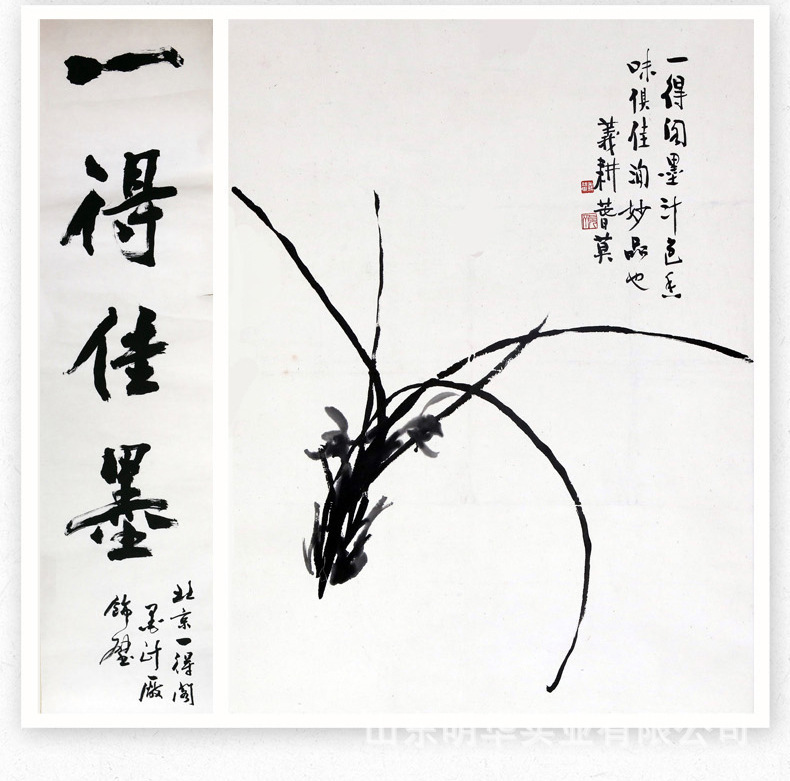 一得佳墨
北京一得阁
墨汁厂
饰壁
一得阁墨汁色香
味俱佳洵妙品也
義耕
山东明华实业有限公司